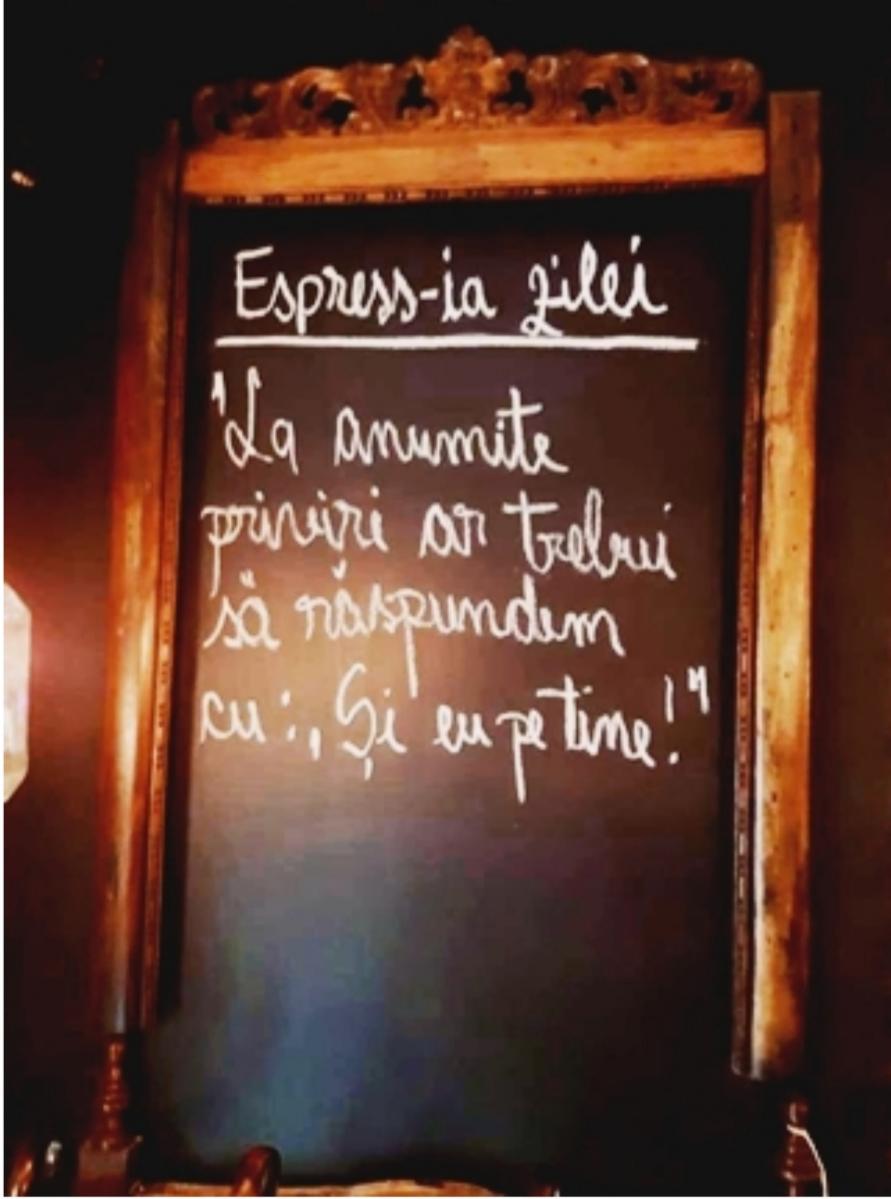 Espress-ia zilei
"La anumite
priviri ar trebui
să răspundem
cu:, Și eu pe tine!"